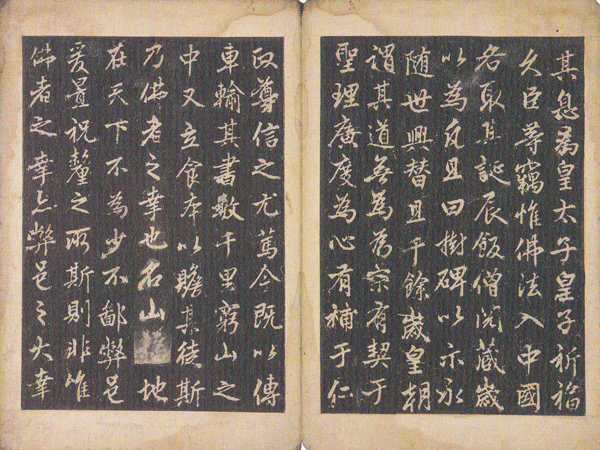 其息為皇太子皇子祈福
久臣等竊惟佛法入中國
名取其誕辰飯僧閱藏歲
以為常且曰樹碑以示永
随世興替且千餘歲皇朝
謂其道無為為宗有契于
聖理廣度為心有補于仁
政尊信之尤篤今既以傳
車輪其書數千里窮山之
中又立食本以贍其徒斯
乃佛者之幸也名山地
在天下不為少不鄙弊邑
爰置祝釐之所斯則非惟
佛者之幸亦弊邑之大幸